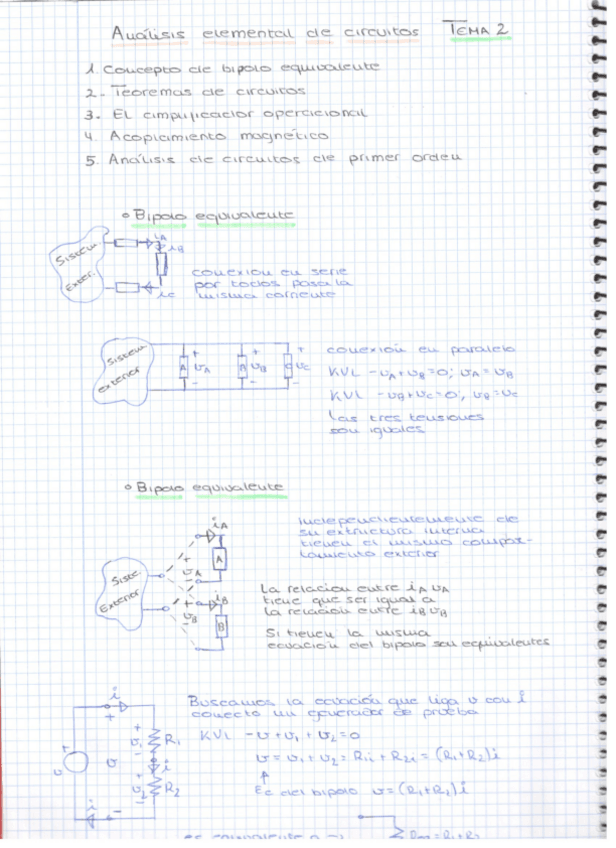 Análisis elemental de circuitos TEMA 2
1. Concepto de bipolo equivalente
2.- Teoremas de circuitos
3. El amplificador operacional
4. Acoplamiento magnético
5. Análisis de circuitos de primer orden
Bipolo equivalente
Sistema
Exter.
iA
iB
iC
conexión en serie
por todos pasa la
misma corriente
Sistem
exterior
A
+
υA
-
B
+
υB
-
C
+
υC
-
conexión en paralelo
KVL -υA+υB=0; υA=υB
KVL -υB+υC=0; υB=υC
Las tres tensiones
son iguales
Bipolo equivalente
Siste
Exterior
iA
+
υA
-
A
iB
+
υB
-
B
Independientemente de
su estructura interna
tienen el mismo compor-
tamiento exterior
La relacion entre iA υA
tiene que ser igual a
la relación entre iB υB
Si tienen la misma
ecuación del bipolo son equivalentes
Buscamos la ecuación que liga υ con i
conecto un generador de prueba
KVL -υ+υ1+υ2=0
υ=υ1+υ2=R1i+R2i=(R1+R2)i
Ec del bipolo υ=(R1+R2)i
i
+
υ
υ
-
+
υ1
-
R1
i
+
υ2
-
R2
i
es equivalente a